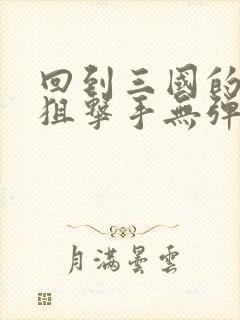 回到三國的
狙擊手無彈
月滿曇雲